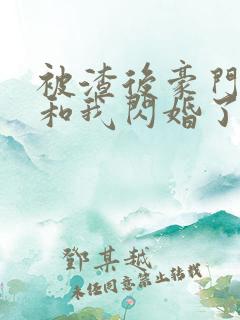 被渣後豪門
和我閃婚了
鄧某越
未任同意禁止轉載